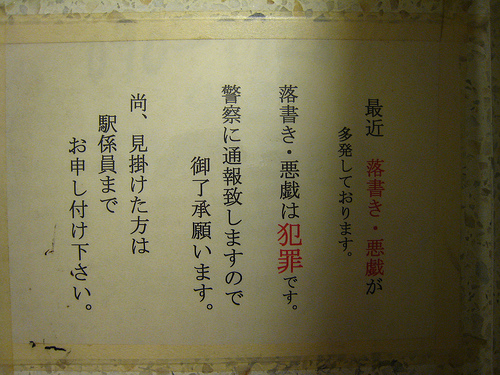 最近　落書き・悪戯が
多発しております。
落書き・悪戯は犯罪です。
警察に通報致しますので
御了承願います。
尚、見掛けた方は
駅係員まで
お申し付け下さい。